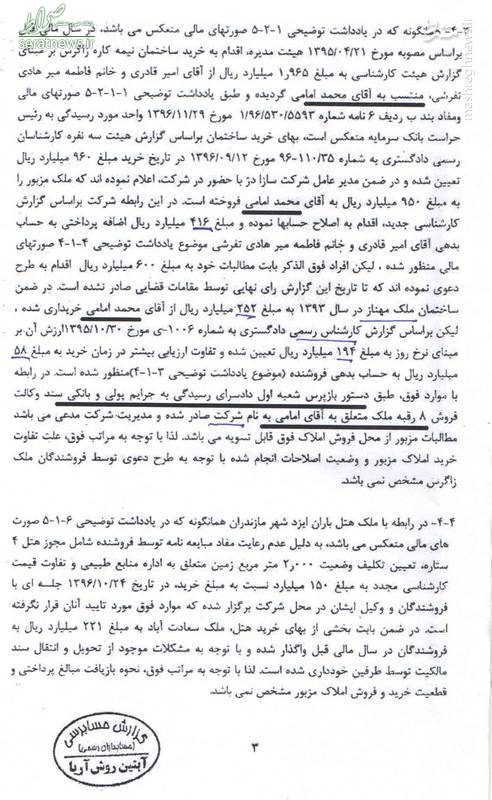 صراط
seratnews.ir
mashreghnews.ir
۴-۳- همانگونه که در یادداشت توضیحی ۱-۲-۵ صورتهای مالی منعکس می باشد، در سال مالی قبل
براساس مصوبه مورخ ۱۳۹۵/۰۴/۲۱ هیئت مدیره، اقدام به خرید ساختمان نیمه کاره زاگرس بر مبنای
گزارش هیئت کارشناسی به مبلغ ۱٫۹۶۵ میلیارد ریال از آقای امیر قادری و خانم فاطمه میر هادی
تفرشی، منتسب به آقای محمد امامی گردیده و طبق یادداشت توضیحی ۱-۱-۲-۵ صورتهای مالی
ومفاد بند ب ردیف ۶ نامه شماره ۱/۹۶/۵۳۰/۵۵۹۳ مورخ ۱۳۹۶/۱۱/۲۹ واحد مورد رسیدگی به رئیس
حراست بانک سرمایه منعکس است، بهای خرید ساختمان براساس گزارش هیئت سه نفره کارشناسان
رسمی دادگستری به شماره ۱۱۰/۳۵-۹۶ مورخ ۱۳۹۶/۰۹/۱۲ در تاریخ خرید مبلغ ۹۶۰ میلیارد ریال
تعیین شده و در ضمن مدیر عامل شرکت سازا دژ با حضور در شرکت، اعلام نموده اند که ملک مزبور را
به مبلغ ۹۵۰ میلیارد ریال به آقای محمد امامی فروخته است. در این رابطه شرکت براساس گزارش
کارشناسی جدید، اقدام به اصلاح حسابها نموده و مبلغ ۴۱۶ میلیارد ریال اضافه پرداختی به حساب
بدهی آقای امیر قادری و خانم فاطمه میر هادی تفرشی موضوع یادداشت توضیحی ۴-۱-۴ صورتهای
مالی منظور شده ، لیکن افراد فوق الذکر بابت مطالبات خود به مبلغ ۶۰۰ میلیارد ریال اقدام به طرح
دعوی نموده اند که تا تاریخ این گزارش رای نهایی توسط مقامات قضایی صادر نشده است. در ضمن
ساختمان ملک مهناز در سال ۱۳۹۳ به مبلغ ۲۵۲ میلیارد ریال از آقای محمد امامی خریداری شده ،
لیکن براساس گزارش کارشناس رسمی دادگستری به شماره ۱۰۰۶-ی مورخ ۱۳۹۵/۱۰/۳۰ارزش آن بر
مبنای نرخ روز به مبلغ ۱۹۴ میلیارد ریال تعیین شده و تفاوت ارزیابی بیشتر در زمان خرید به مبلغ ۵۸
میلیارد ریال به حساب بدهی فروشنده (موضوع یادداشت توضیحی ۳-۱-۴)منظور شده است. در رابطه
با موارد فوق، طبق دستور بازپرس شعبه اول دادسرای رسیدگی به جرایم پولی و بانکی سند وکالت
فروش ۸ رقبه ملک متعلق به آقای امامی به نام شرکت صادر شده و مدیریت شرکت مدعی می باشد
مطالبات مزبور از محل فروش املاک فوق قابل تسویه می باشد. لذا با توجه به مراتب فوق، علت تفاوت
خرید املاک مزبور و وضعیت اصلاحات انجام شده با توجه به طرح دعوی توسط فروشندگان ملک
زاگرس مشخص نمی باشد.
۴-۴- در رابطه با ملک هتل باران ایزد شهر مازندران همانگونه که در یادداشت توضیحی ۶-۱-۵ صورت
های مالی منعکس می باشد، به دلیل عدم رعایت مفاد مبایعه نامه توسط فروشنده شامل مجوز هتل ۴
ستاره، تعیین تکلیف وضعیت ۲٫۰۰۰ متر مربع زمین متعلق به اداره منابع طبیعی و تفاوت قیمت
کارشناسی مجدد به مبلغ ۱۵۰ میلیارد نسبت به مبلغ خرید، در تاریخ ۱۳۹۶/۱۰/۲۴ جلسه ای با
فروشندگان و وکیل ایشان در محل شرکت برگزار شده که موارد فوق مورد تایید آنان قرار نگرفته
است. در ضمن بابت بخشی از بهای خرید هتل، ملک سعادت آباد به مبلغ ۲۲۱ میلیارد ریال به
فروشندگان در سال مالی قبل واگذار شده و با توجه به مشکلات موجود از تحویل و انتقال سند
مالکیت توسط طرفین خودداری شده است. لذا با توجه به مراتب فوق، نحوه بازیافت مبالغ پرداختی و
قطعیت خرید و فروش املاک مزبور مشخص نمی باشد.
۳
گزارش حسابرسی
(حسابداران رسمی)
آبتین روش آریا